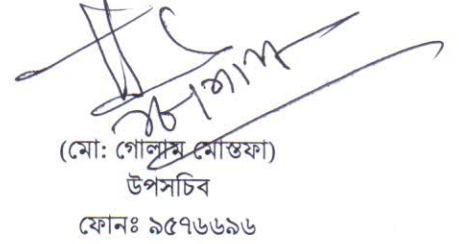 (মো: গোলাম মোস্তফা)
উপসচিব
ফোনঃ ৯৫৭৬৬৯৬